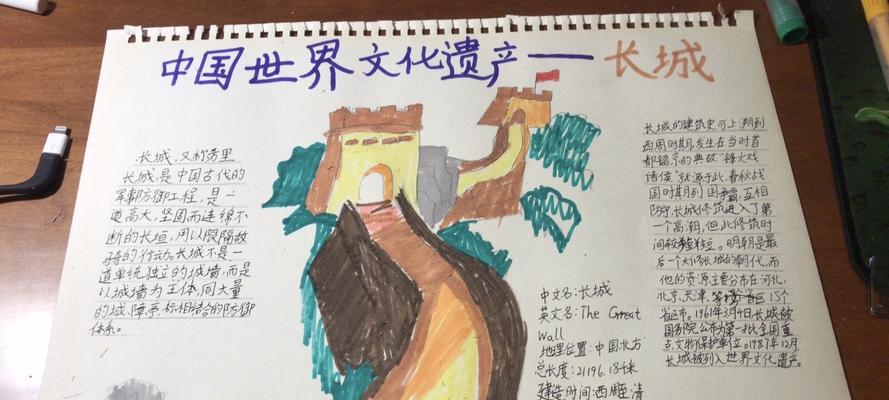 中国世界文化遗产——长城
长城,又称万里
长城,是中国古代的
军事防御工程,是一
道高大、坚固而连绵不
断的长垣,用以限隔敌
骑的行动。长城不是一
道单纯独立的城墙,而是
以城墙为主体,同大量
的城、障、亭、标相结合的防御
体系。
中文名:长城
英文名:The Great
Wall
地理位置:中国北方
总长度:21196.18千米
建造时间:西周至清
长城的建筑史可上溯到
西周时期,发生在当时首
都镐京的典故"烽火戏
诸侯"就源于此,春秋战
国时期列国争霸,互相
防守,长城修筑进入了第
一个高潮,但此修筑时
间较短。明朝是最
后一个大修长城的朝代,而
他的资源主要分布在河北,
北京、天津、等 15个
省区市。1961年3月4日长城被
国务院公布为第一批全国重
点文物保护单位。1987年12月,
长城被列入世界文化遗产。